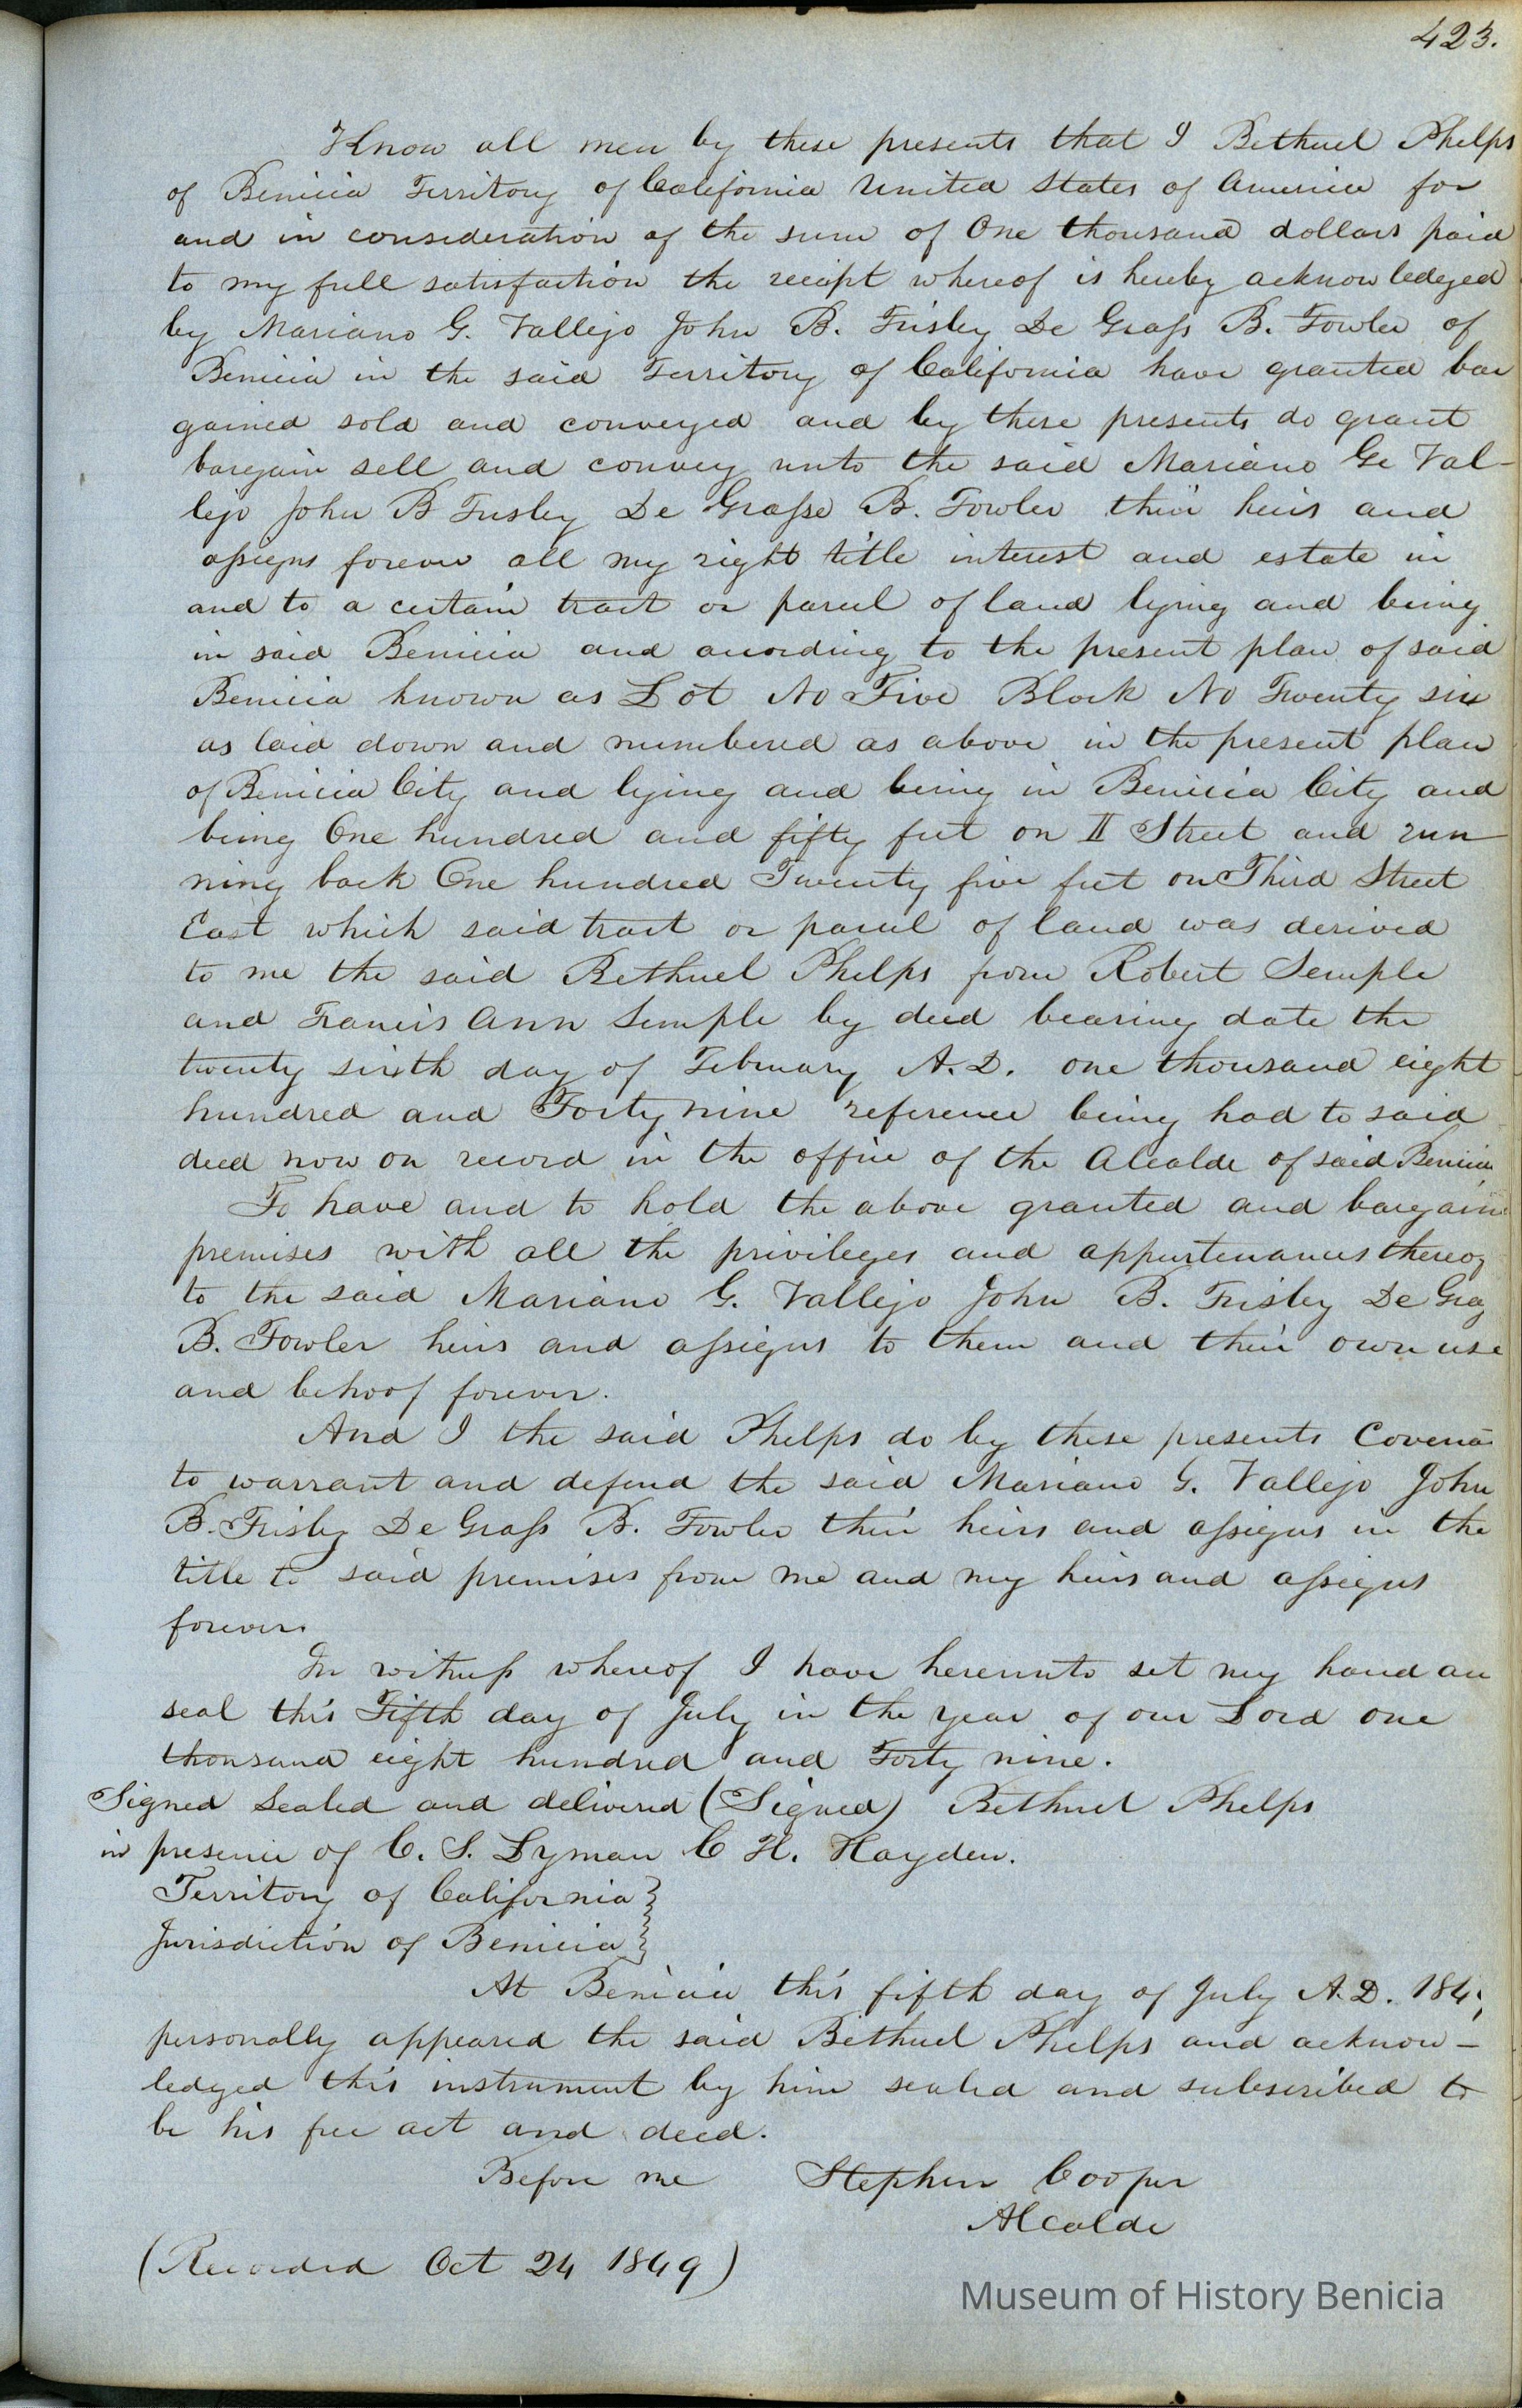 423.
Know all men by these presents that I Bethuel Phelps
of Benicia Territory of California United States of America for
and in consideration of the sum of One thousand dollars paid
to my full satisfaction the receipt whereof is hereby acknowledged
by Mariano G. Vallejo John B. Frisby De Grass B. Fowler of
Benicia in the said Territory of California have granted bar
gained sold and conveyed and by these presents do grant
bargain sell and convey unto the said Mariano G. Val-
lejo John B Frisby De Grasse B. Fowler their heirs and
assigns forever all my right title interest and estate in
and to a certain tract or parcel of land lying and being
in said Benicia and according to the present plan of said
Benicia known as Lot No Five Block No Twenty six
as laid down and numbered as above in the present plan
of Benicia City and lying and being in Benicia City and
being One hundred and fifty feet on II Street and run
ning back One hundred Twenty five feet on Third Street
East which said tract or parcel of land was derived
to me the said Bethuel Phelps from Robert Semple
and Francis Ann Semple by deed bearing date the
twenty sixth day of February A.D. one thousand eight
hundred and Forty nine reference being had to said
deed now on record in the office of the Alcalde of said Benicia
To have and to hold the above granted and bargain
premises with all the privileges and appurtenances thereof
to the said Mariano G. Vallejo John B. Frisby De Gras
B. Fowler heirs and assigns to them and their own use
and behoof forever.
And I the said Phelps do by these presents Covena
to warrant and defend the said Mariano G. Vallejo John
B. Frisby De Grass B. Fowler their heirs and assigns in the
title to said premises from me and my heirs and assigns
forever.
In witness whereof I have hereunto set my hand an
seal this Fifth day of July in the year of our Lord one
thousand eight hundred and Forty nine.
Signed Sealed and delivered (Signed) Bethuel Phelps
in presence of C. S. Lyman C H. Hayden.
Territory of California }
Jurisdiction of Benicia }
At Benicia this fifth day of July A.D. 1849
personally appeared the said Bethuel Phelps and acknow-
ledged this instrument by him sealed and subscribed to
be his free act and deed.
Before me Stephen Cooper
Alcalde
(Recorded Oct 24 1849)
Museum of History Benicia